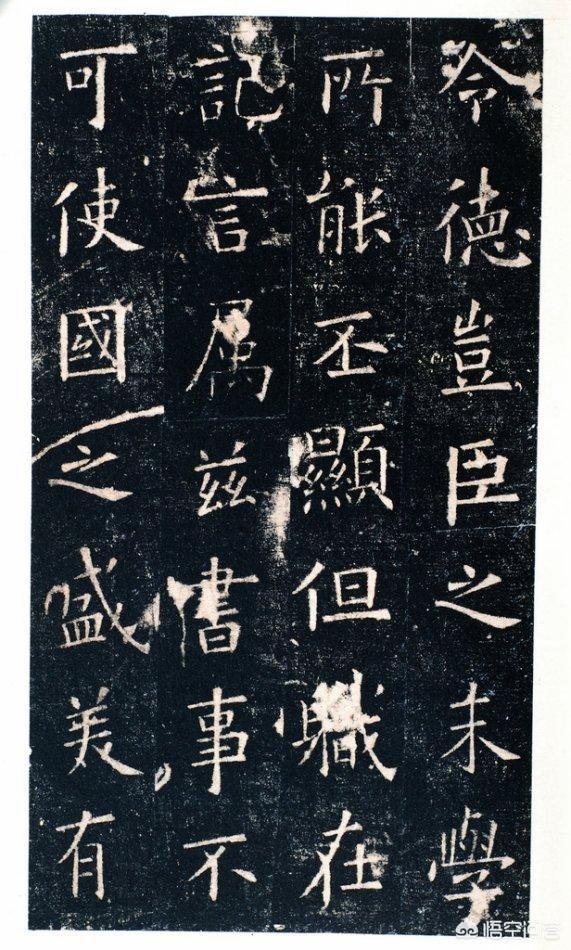 令德豈臣之末學
所能丕顯但職在
記言属兹書事不
可使國之盛美有
悟空问答